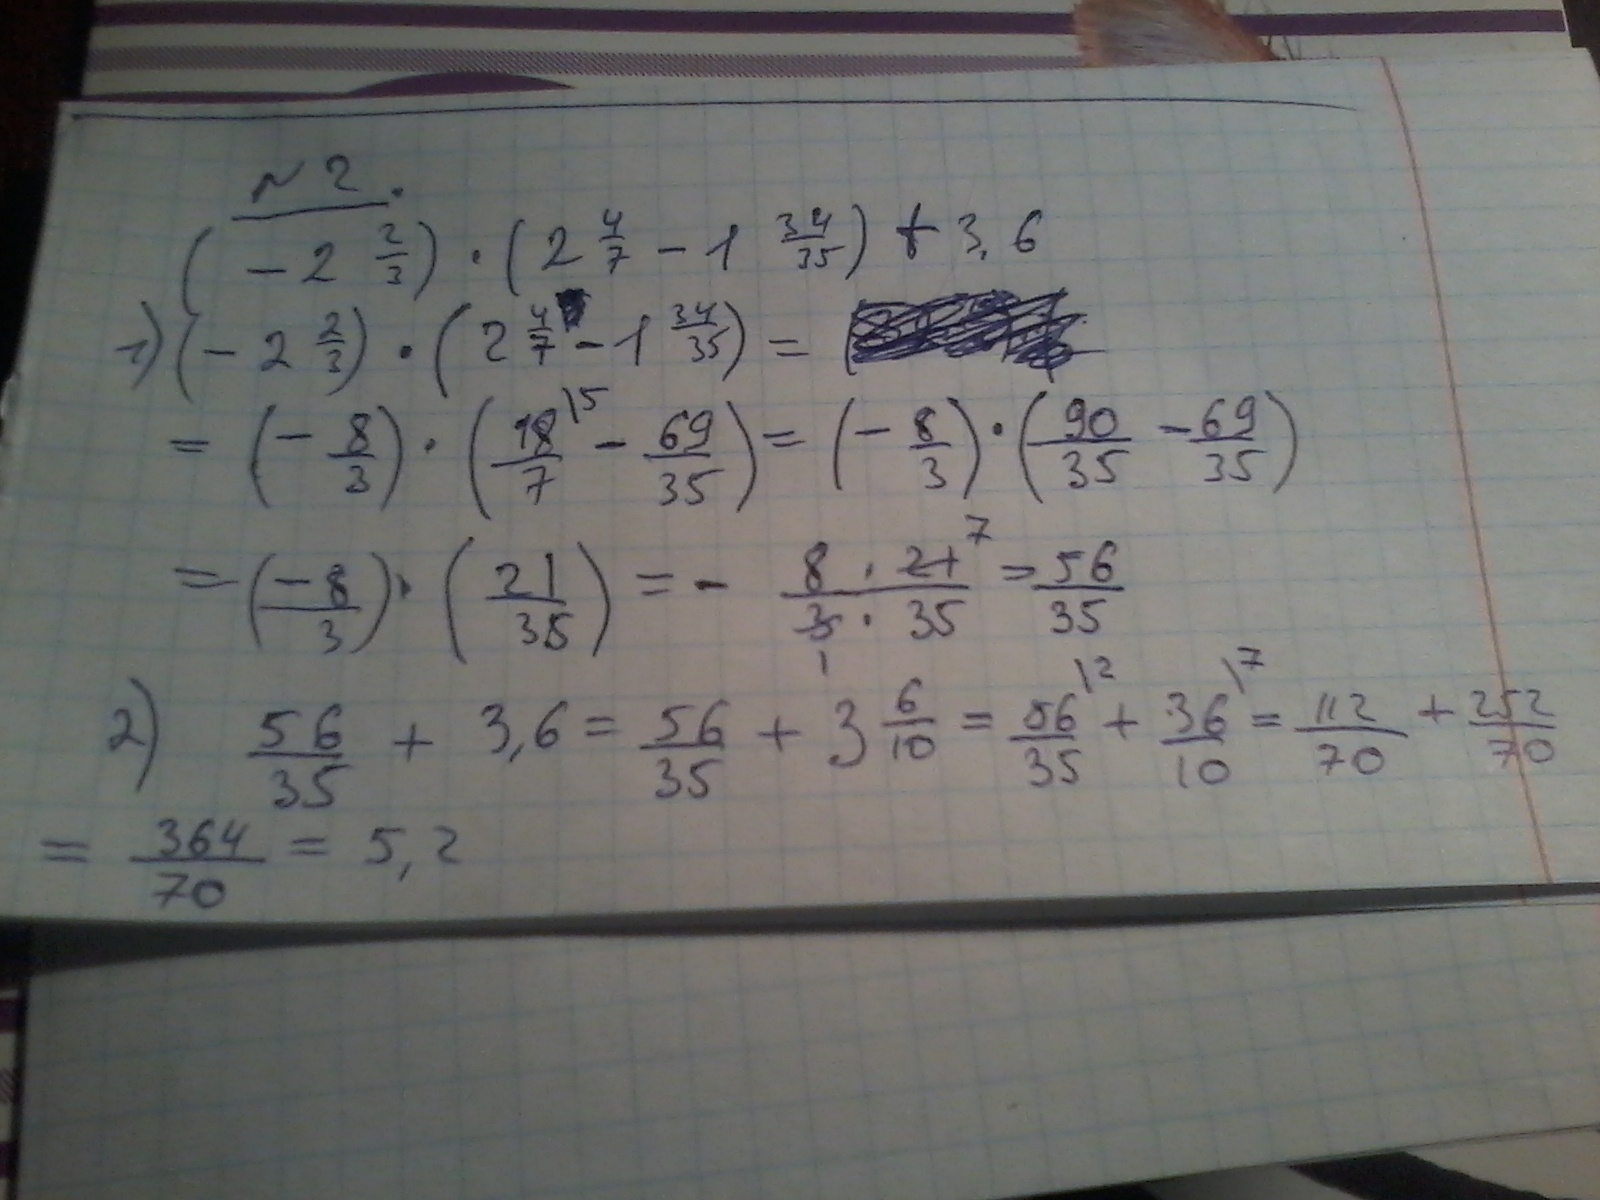 № 2.
(-2 2/3) · (2 4/7 - 1 34/35) + 3,6
1) (-2 2/3) · (2 4/7 - 1 34/35) =
= (-8/3) · (18/7 \5 - 69/35) = (-8/3) · (90/35 - 69/35)
= (-8/3) · (21/35) = - 8 · 21 7/3 · 35 1 = 56/35
2) 56/35 + 3,6 = 56/35 + 3 6/10 = 56/35 \2 + 36/10 \7 = 112/70 + 252/70
= 364/70 = 5,2